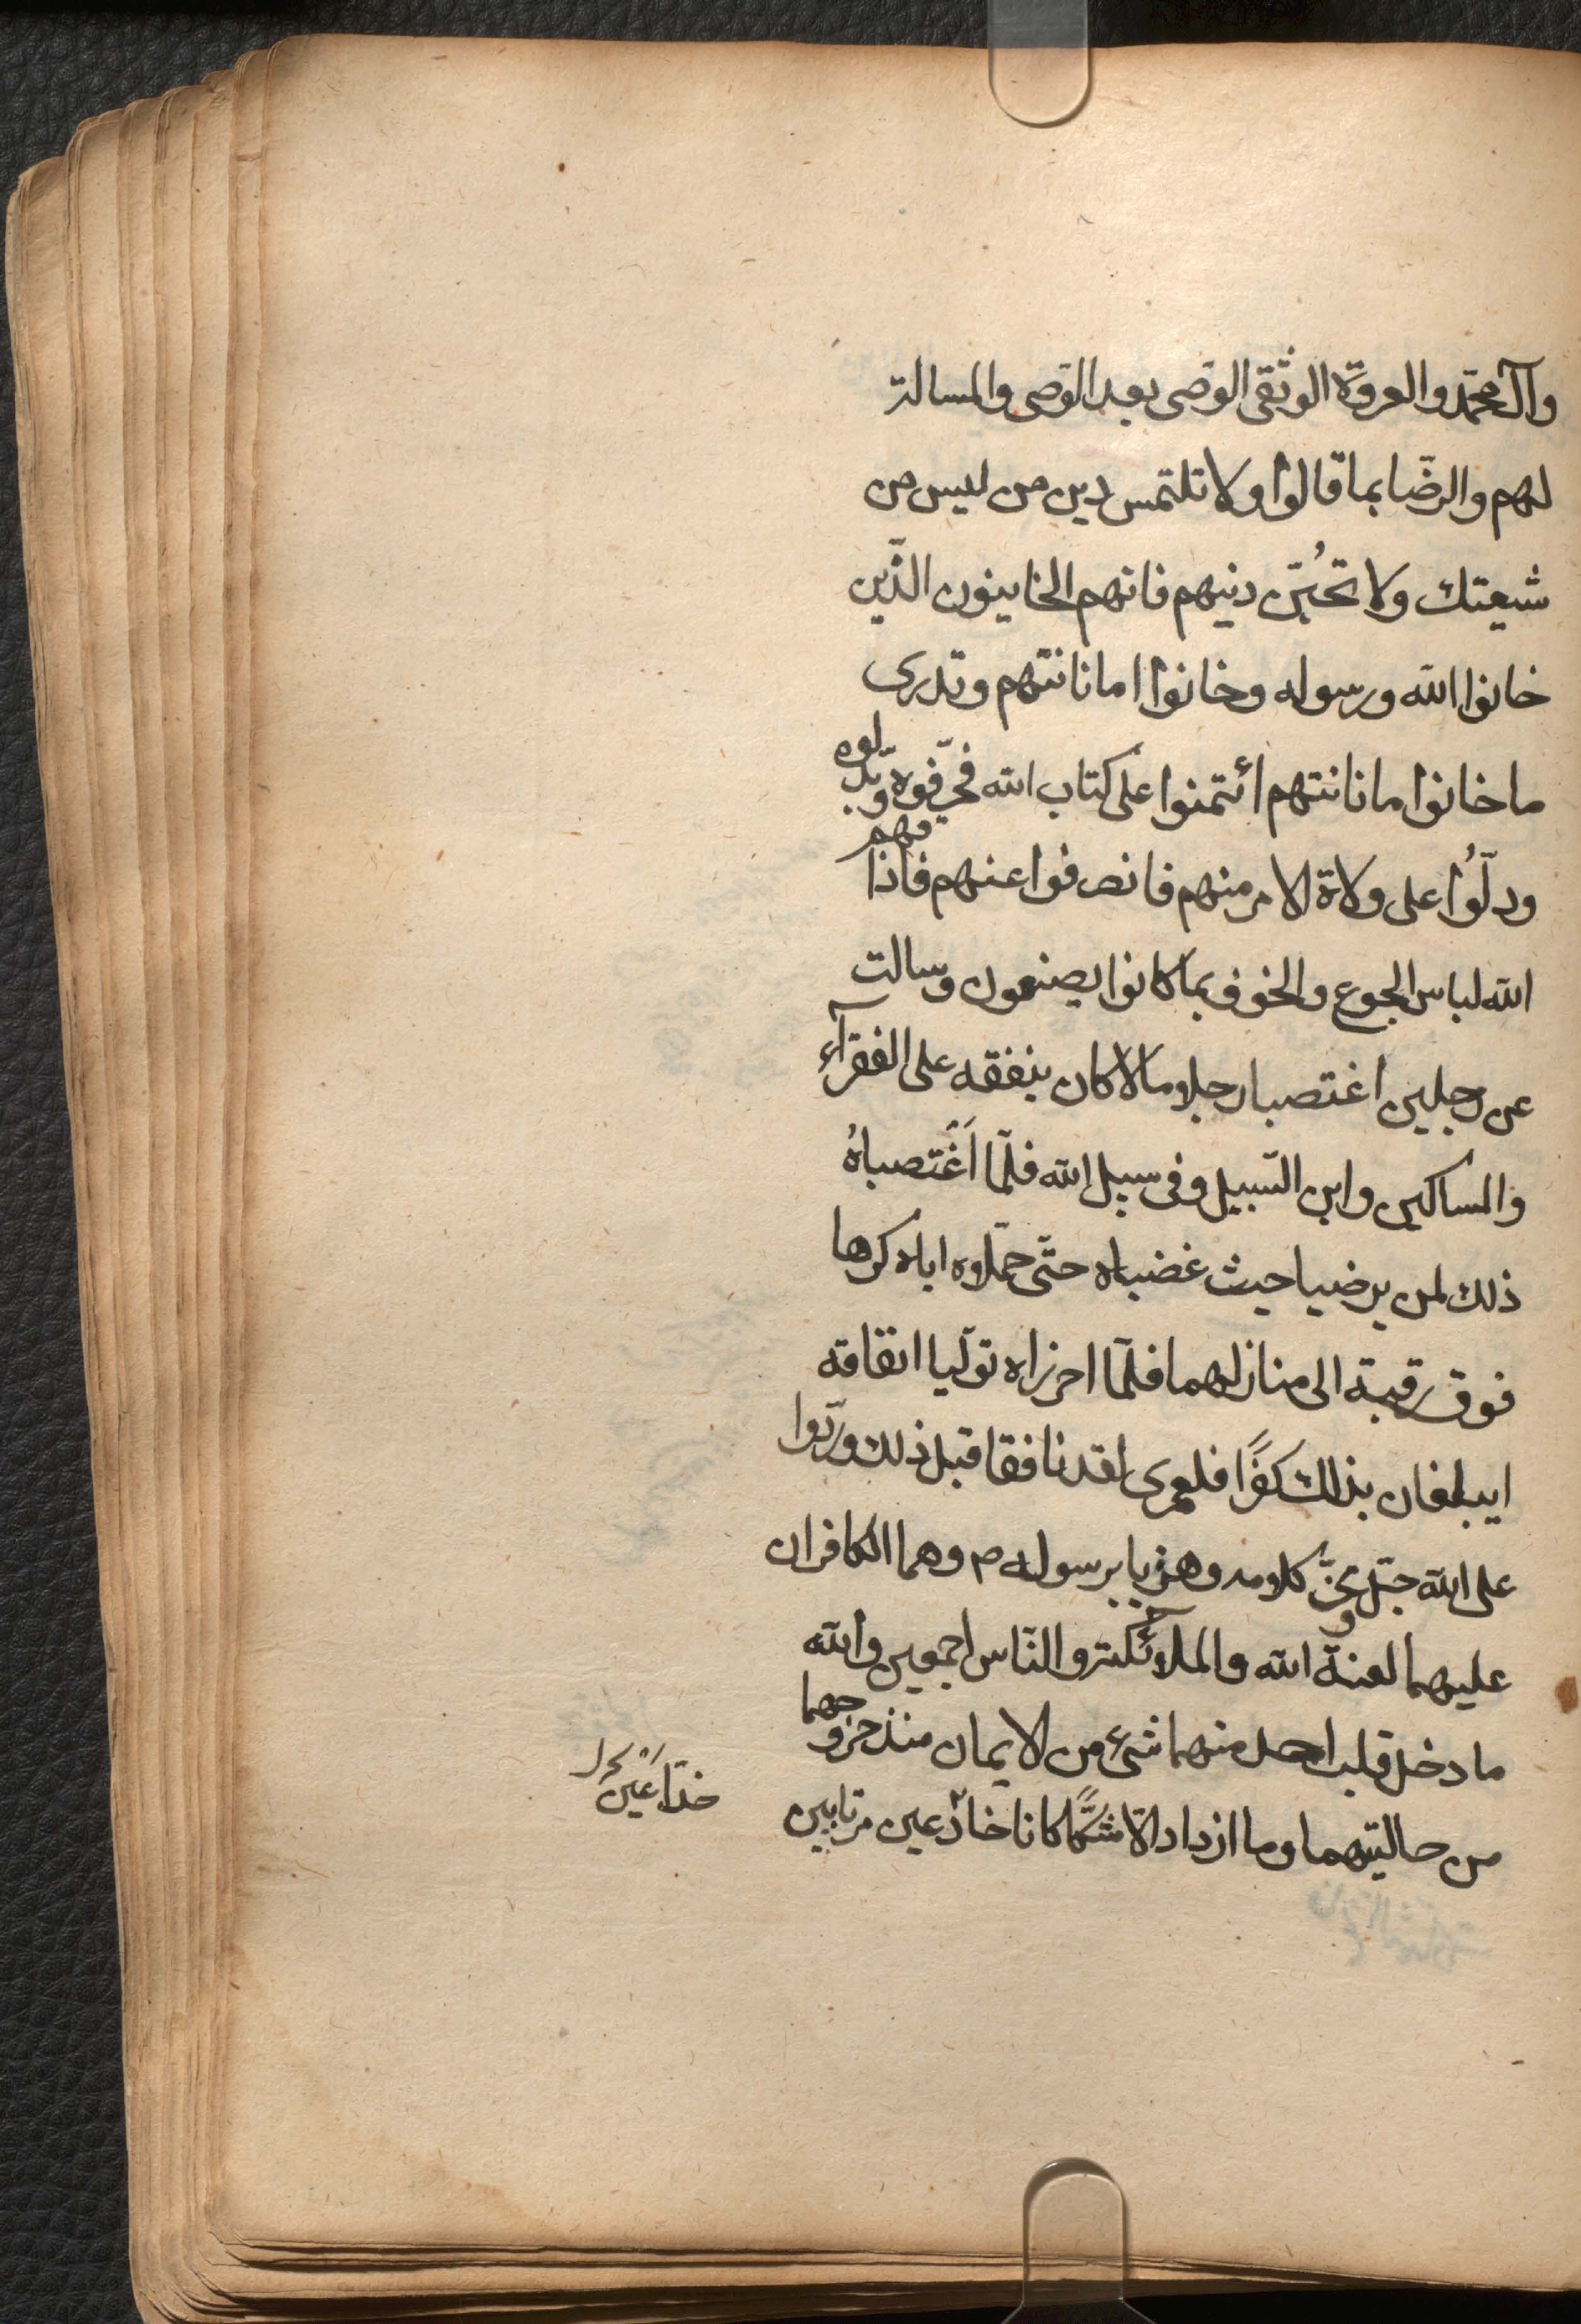 وآل محمّد والعروة الوثقى الوصى بعد الوصى والمسالة
لهم والرضّا بما قالوا ولا تلتمس دين من ليس من
شيعتك ولا تحُبّن دنيهم فانهم الخاينون الذّين
خانوا الله ورسوله وخانوا امانانتهم وتدرى
ما خانوا مانانتهم ائتمنوا على كتاب الله فحرّفوه وبّدلوه
ودلّوُا على ولاة الامر منهم فانصرفوا عنهم فاذاقهم
الله لباس الجوع والخوف بما كانوا يصنعون وسالت
عن رجلين اغتصبا رجلا مالا كان ينفقه على الفقرآء
والمساكين وابن السّبيل وفى سبيل الله فلّما اَغَتصباهُ
ذلك لمن يرضيا حيث غضباه حتّى حمّلاوه اياه كرها
فوق رقبة الى منازلهما فلّما احرزاه تولّيا انقاقه
ايبلغان بذالك كفرًا فلعمرى لقد نافقا قبل ذلك وردّوا
على الله جّل وعزّ كلامه وهزيا برسوله ص وهما الكافران
عليهما لعنة الله والملائكة والنّاس اجمعين والله
ما دخل قلب احد منهما شىء من الايمان منذ خروجهما
من حاليتهما وما ازدادا الّا شكًّا كانا خادّعين مرتابين
خدّاعَيْن